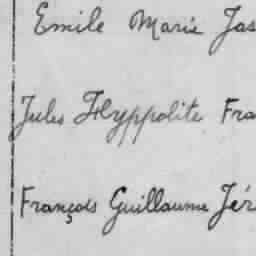 Emile Marie Jas
Jules Hyppolite Fra
François Guillaume Jér